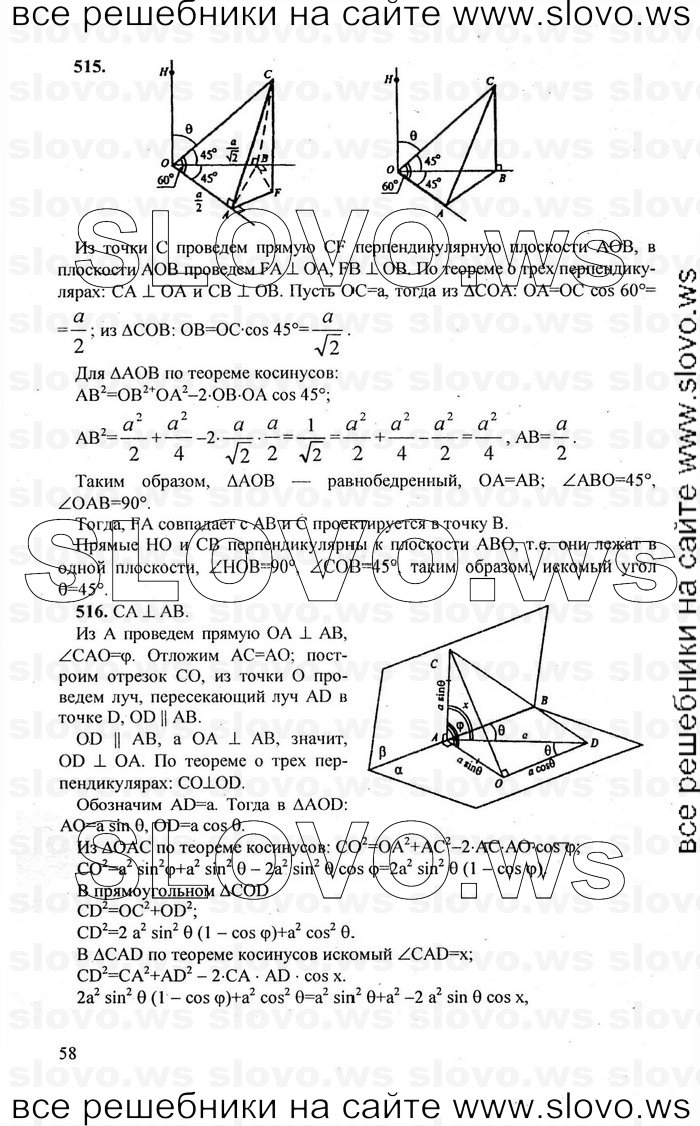 все решебники на сайте www.slovo.ws
515.
H
C
θ
45°
a/√2
B
O
45°
60°
F
a/2
A
H
C
θ
45°
O
B
60°
45°
A
Из точки С проведем прямую CF перпендикулярную плоскости АОВ, в
плоскости АОВ проведем FA⊥ OA, FB ⊥OB. По теореме о трех перпендику-
лярах: CA ⊥ OA и CB ⊥ OB. Пусть OC=a, тогда из ΔCOA: OA=OC cos 60°=
=a/2; из ΔCOB: OB=OC·cos 45°=a/√2.
Для ΔAOB по теореме косинусов:
AB²=OB²⁺OA²–2·OB·OA cos 45°;
AB²=a²/2+a²/4–2·a/√2·a/2=1/√2=a²/2+a²/4–a²/2=a²/4, AB=a/2.
Таким образом, ΔAOB — равнобедренный, OA=AB; ∠ABO=45°,
∠OAB=90°.
Тогда, FA совпадает с AB и C проектируется в точку B.
Прямые HO и CB перпендикулярны к плоскости ABO, т.е. они лежат в
одной плоскости, ∠HOB=90°, ∠COB=45° таким образом, искомый угол
θ=45°.
516. CA⊥AB.
Из A проведем прямую OA ⊥ AB,
∠CAO=φ. Отложим AC=AO; пост-
роим отрезок CO, из точки O про-
ведем луч, пересекающий луч AD в
точке D, OD || AB.
OD || AB, а OA ⊥ AB, значит,
OD ⊥ OA. По теореме о трех пер-
пендикулярах: CO⊥OD.
Обозначим AD=a. Тогда в ΔAOD:
AO=a sin θ, OD=a cos θ.
C
a sinθ
x
B
φ
A
θ
a
D
β
θ
α
a sinθ
a cosθ
O
Из ΔOAC по теореме косинусов: CO²=OA²+AC²–2·AC·AO·cos φ;
CO²=a² sin²φ+a² sin² θ – 2a² sin² θ cos φ=2a² sin² θ (1 – cos φ).
В прямоугольном ΔCOD
CD²=OC²+OD²;
CD²=2 a² sin² θ (1 – cos φ)+a² cos² θ.
В ΔCAD по теореме косинусов искомый ∠CAD=x;
CD²=CA²+AD² – 2·CA · AD · cos x.
2a² sin² θ (1 – cos φ)+a² cos² θ=a² sin² θ+a² –2 a² sin θ cos x,
58
все решебники на сайте www.slovo.ws
все решебники на сайте www.slovo.ws
SLOVO.ws
SLOVO.ws
SLOVO.ws